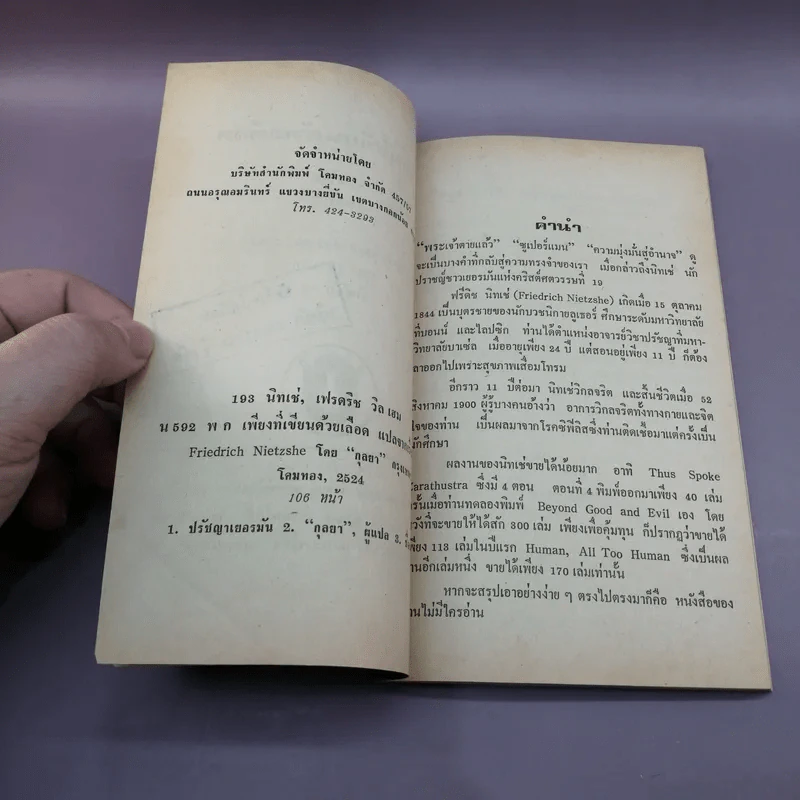 จัดจำหน่ายโดย
บริษัทสำนักพิมพ์ โดมทอง จำกัด 457/
ถนนอรุณอมรินทร์ แขวงบางยี่ขัน เขตบางกอกน้อย
โทร. 424-3293
193 นิทเช่, เฟรดริช วิลเฮม
น 592 พ ก เพียงที่เขียนด้วยเลือด แปลจาก
Friedrich Nietzshe โดย "กุลยา" กรุงเทพ
โดมทอง, 2524
106 หน้า
1. ปรัชญาเยอรมัน 2. "กุลยา", ผู้แปล 3.
คำนำ
"พระเจ้าตายแล้ว" "ซูเปอร์แมน" "ความมุ่งมั่นสู่อำนาจ" ดู
จะเป็นบางคำที่กลับสู่ความทรงจำของเรา เมื่อกล่าวถึงนิทเช่ นัก
ปราชญ์ชาวเยอรมันแห่งคริสต์ศตวรรษที่ 19
ฟรีดิช นิทเช่ (Friedrich Nietzshe) เกิดเมื่อ 15 ตุลาคม
1844 เป็นบุตรชายของนักบวชนิกายลูเธอร์ ศึกษาระดับมหาวิทยาลัย
ที่บอนน์ และไลปซิก ท่านได้ตำแหน่งอาจารย์วิชาปรัชญาที่มหา-
วิทยาลัยบาเซ่ล เมื่ออายุเพียง 24 ปี แต่สอนอยู่เพียง 11 ปี ก็ต้อง
ลาออกไปเพราะสุขภาพเสื่อมโทรม
อีกราว 11 ปีต่อมา นิทเช่วิกลจริต และสิ้นชีวิตเมื่อ 52
สิงหาคม 1900 ผู้รู้บางคนอ้างว่า อาการวิกลจริตทั้งทางกายและจิต
ใจของท่าน เป็นผลมาจากโรคซิฟิลิสซึ่งท่านติดเชื้อมาแต่ครั้งเป็น
นักศึกษา
ผลงานของนิทเช่ขายได้น้อยมาก อาทิ Thus Spoke
Zarathustra ซึ่งมี 4 ตอน ตอนที่ 4 พิมพ์ออกมาเพียง 40 เล่ม
ครั้นเมื่อท่านทดลองพิมพ์ Beyond Good and Evil เอง โดย
หวังที่จะขายให้ได้สัก 300 เล่ม เพียงเพื่อคุ้มทุน ก็ปรากฏว่าขายได้
เพียง 113 เล่มในปีแรก Human, All Too Human ซึ่งเป็นผล
งานอีกเล่มหนึ่ง ขายได้เพียง 170 เล่มเท่านั้น
หากจะสรุปเอาอย่างง่าย ๆ ตรงไปตรงมาก็คือ หนังสือของ
ท่านไม่มีใครอ่าน